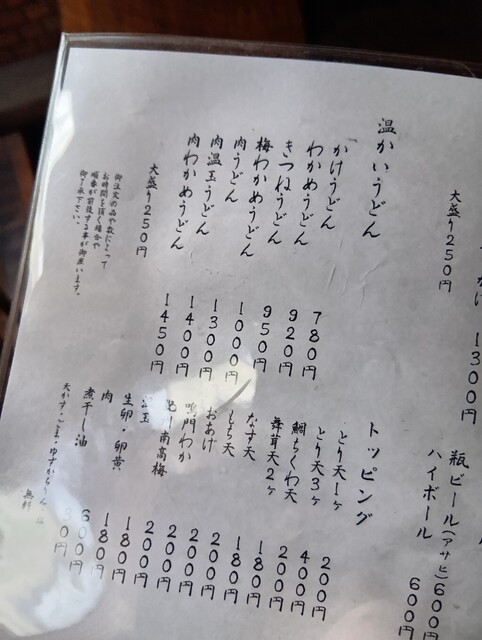 かけ 1300円
大盛り250円
温かいうどん
かけうどん 780円
わかめうどん 920円
きつねうどん 950円
梅わかめうどん 1000円
肉うどん 1300円
肉温玉うどん 1400円
肉わかめうどん 1450円
大盛り250円
御注文の品や数によって
お時間を頂く場合や
順番が前後する事が御座います。
御了承下さい。
瓶ビール(アサヒ)600円
ハイボール 600円
トッピング
とり天1ヶ 200円
とり天3ヶ 400円
鯛ちくわ天 200円
舞茸天2ヶ 180円
なす天 180円
もち天 200円
おあげ 200円
鳴門わか 200円
南高梅 200円
玉 180円
生卵・卵黄 180円
肉 600円
煮干し油 30円
天かす・ごま・ 無料